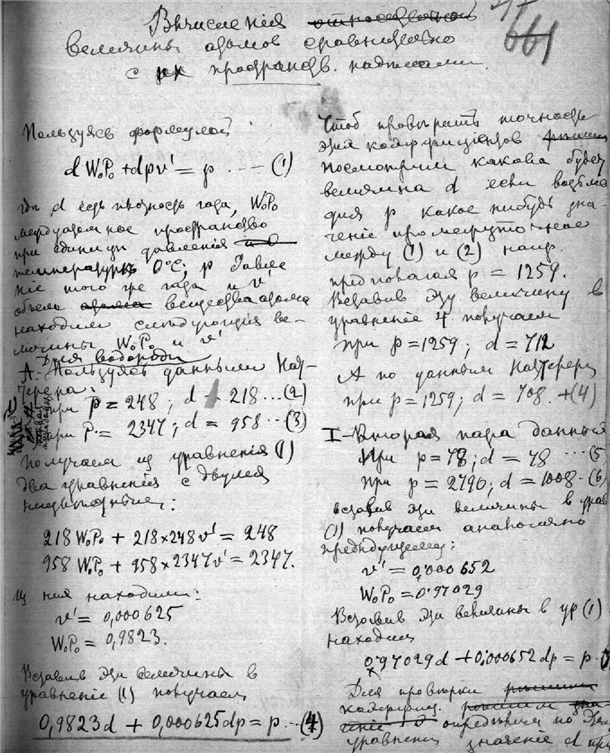 Вычисленiя
величины атомов сравнительно
с их пространств. надписями.
661
Пользуясь формулой
dW₀P₀ + dpv' = p ---- (1)
гдѣ d есть плотность газа, W₀P₀
междуатомное пространство
при единицѣ давленiя
температурѣ 0°C, p давле
нiе того же газа и v'
объем вещества атома
находим слѣдующiя ве-
личины W₀P₀ и v'
Для водорода
А. Пользуясь данными Нат
терера.
при p = 248; d - 218 ---(2)
при p. = 2347; d = 958 ---(3)
получаем из уравненiя (1)
два уравненiя с двумя
неизвѣстные:
218 W₀P₀ + 218×248v' = 248
958 W₀P₀ + 958×2347v' = 2347.
Из них находим:
v' = 0,000625
W₀P₀ = 0,9823.
Вставив эти величины в
уравненiе (1) получаем
0,9823d + 0,000625dp = p -- (4)
Чтоб провѣрить точность
этих коэффицiентов
посмотрим какова будет
величина d если возьмем
для p какое нибудь зна-
ченiе промежуточное
между (1) и (2) напр.
предполагая p = 1259.
Вставив эту величину в
уравненiе 4 получаем
при p = 1259; d = 712
А по данным Наттерера
при p = 1259; d = 708. +(4)
I - Вторая пара данных
При p = 78; d = 78 ---(5
при p = 2790; d = 1008 -(6)
вставив эти величины в урав
(1) получаем аналогично
предидущему:
v' = 0,000652
W₀P₀ = 0.97029
Вставив эти величины в ур (1)
находим
0,97029d + 0,000652dp = p -
Для провѣрки
коэффиц.
опредѣляем по этому
уравненiю значенiе d при